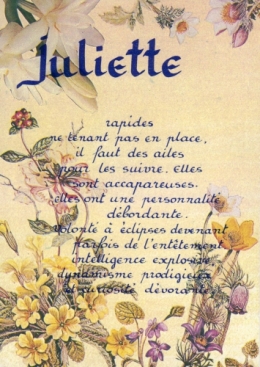 Juliette
rapides
ne tenant pas en place,
il faut des ailes
pour les suivre. elles
sont accapareuses.
elles ont une personnalité
débordante.
volonté à éclipses devenant
parfois de l'entêtement
intelligence explosive,
dynamisme prodigieux
et curiosité dévorante.